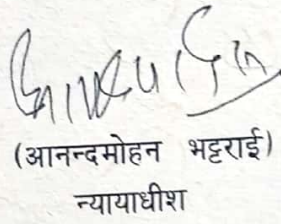 (आनन्दमोहन भट्टराई)
न्यायाधीश